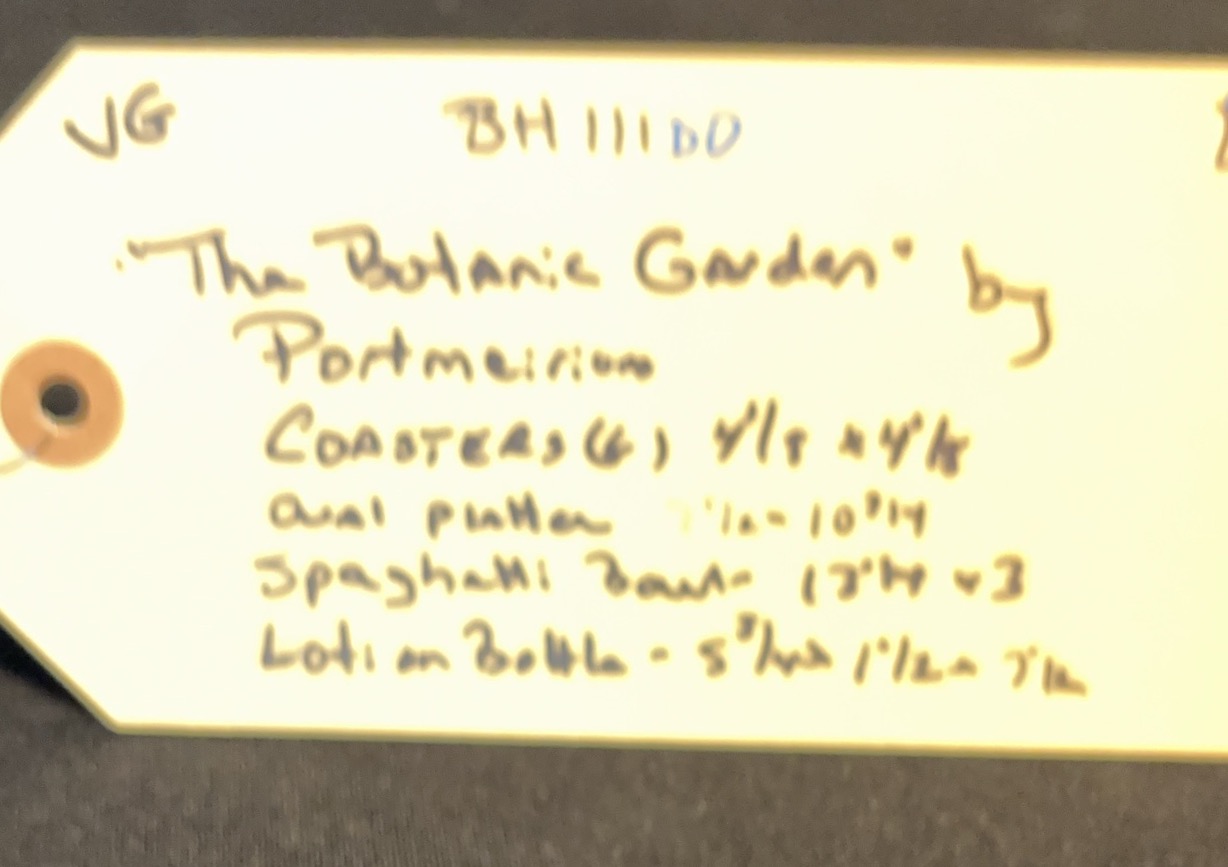 VG BH 111 DO
"The Botanic Garden" by
Portmeirion
COASTERS (6) 4 1/8 x 4 1/8
Oval platter 10 3/4
Spaghetti Bowl - x 3
Lotion Bottle - 5 3/4 x 1 1/2